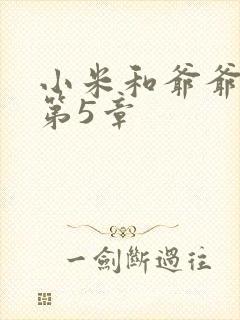 小米和爷爷
第5章
一劍斷過往